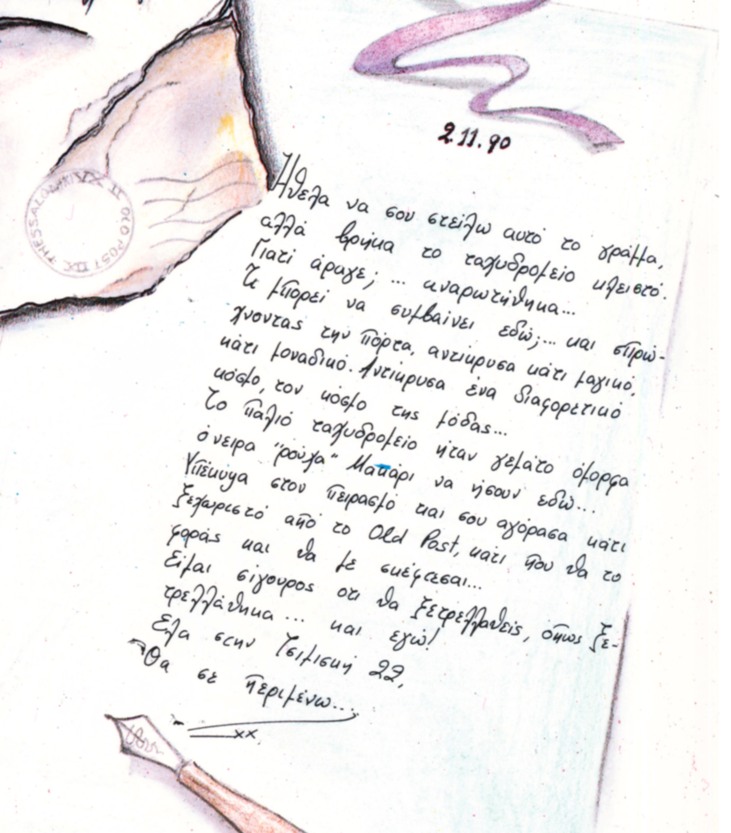 2.11.90
Ήθελα να σου στείλω αυτό το γράμμα,
αλλά βρήκα το ταχυδρομείο κλειστό.
Γιατί άραγε; ... αναρωτήθηκα...
Τι μπορεί να συμβαίνει εδώ;... και σπρώ-
χνοντας την πόρτα, αντίκρυσα κάτι μαγικό,
κάτι μοναδικό. Αντίκρυσα ένα διαφορετικό
κόσμο, τον κόσμο της μόδας...
Το παλιό ταχυδρομείο ήταν γεμάτο όμορφα
όνειρα "ρούχα" Μακάρι να ήσουν εδώ...
Υπέκυψα στον πειρασμό και σου αγόρασα κάτι
ξεχωριστό από το Old Post, κάτι που θα το
φοράς και θα με σκέφτεσαι...
Είμαι σίγουρος οτι θα ξετρελλαθείς, όπως ξε-
τρελλάθηκα... και εγώ!
Έλα στην Τσιμισκή 22,
Θα σε περιμένω...
xx.
THESSALONIKI XX II OLD POST IX